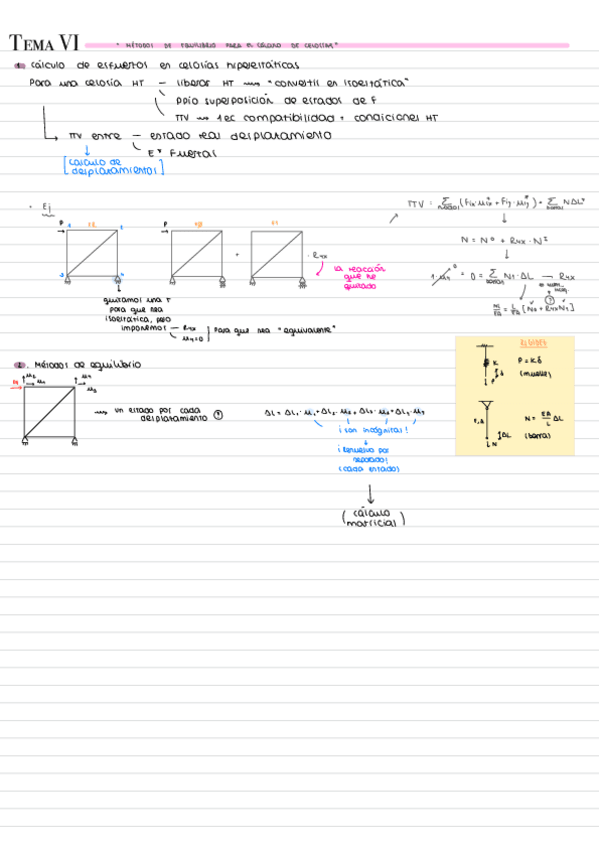 TEMA VI
" MÉTODOS DE EQUILIBRIO PARA EL CÁLCULO DE CELOSÍAS "
1. Cálculo de esfuerzos en celosías hiperestáticas
Para una celosía HT — liberar HT → "convertir en isoestática"
ppio superposición de estados de F
TTV → 1 ec compatibilidad + condiciones HT
TTV entre — estado real desplazamiento
E* Fuerzas
[cálculo de
desplazamientos]
· Ej
P
P
+
· R4x
la reacción
que he
quitado
quitamos una r
para que sea
isoestática, pero
imponemos — R4x
u4=0
para que sea "equivalente"
N = N⁰ + R4x · N¹
2. Métodos de equilibrio
→ un estado por cada
desplazamiento
¡ son incógnitas !
¡ Resuelvo por
separado!
(cada estado)
(cálculo
matricial)
RIGIDEZ
K
P = K δ
(muelle)
N = EA/L ΔL
ΔL
N
(barra)